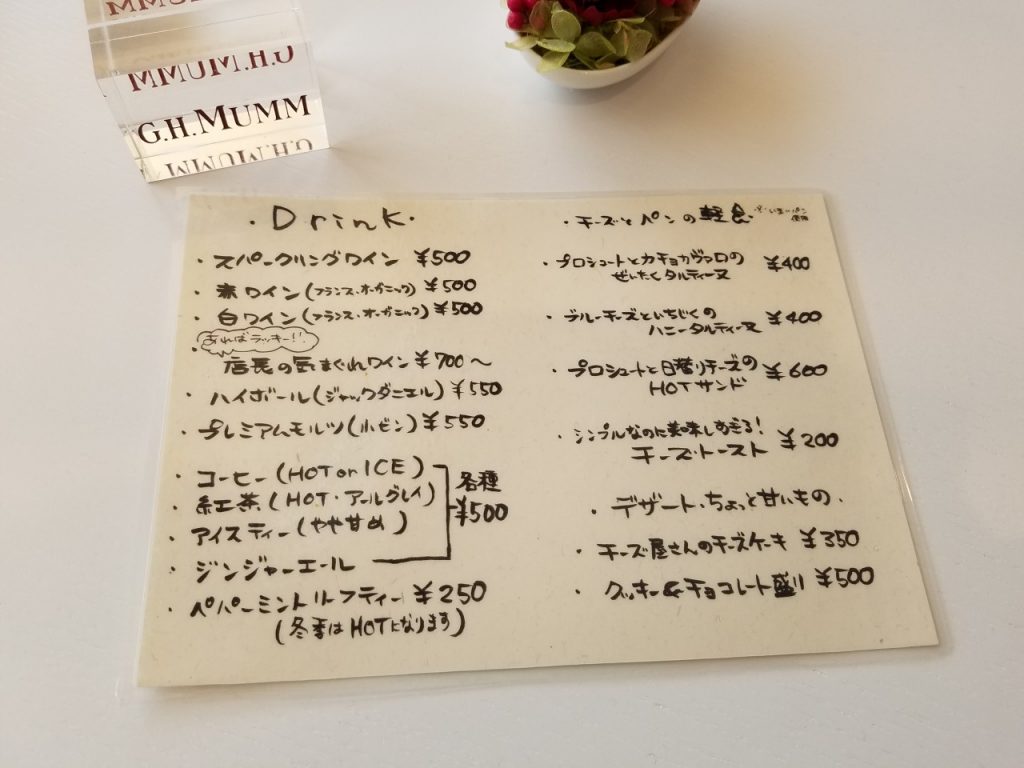 G.H.MUMM
・Drink・
・スパークリングワイン ¥500
・赤ワイン(フランス・オーガニック) ¥500
・白ワイン(フランス・オーガニック) ¥500
あればラッキー!!
・店長の気まぐれワイン ¥700〜
・ハイボール(ジャックダニエル) ¥550
・プレミアムモルツ(小ビン) ¥550
・コーヒー(HOT or ICE)
・紅茶(HOT・アールグレイ)
・アイスティー(やや甘め)
・ジンジャーエール
各種
¥500
・ペパーミントリーフティー ¥250
(冬季はHOTになります)
・チーズとパンの軽食・
・プロシュートとカチョカヴァロの
ぜいたくタルティーヌ ¥400
・ブルーチーズといちじくの
ハニータルティーヌ ¥400
・プロシュートと日替りチーズの
HOTサンド ¥600
・シンプルなのに美味しすぎる!
チーズ・トースト ¥200
・デザート・ちょっと甘いもの・
・チーズ屋さんのチーズケーキ ¥350
・クッキー&チョコレート盛り ¥500